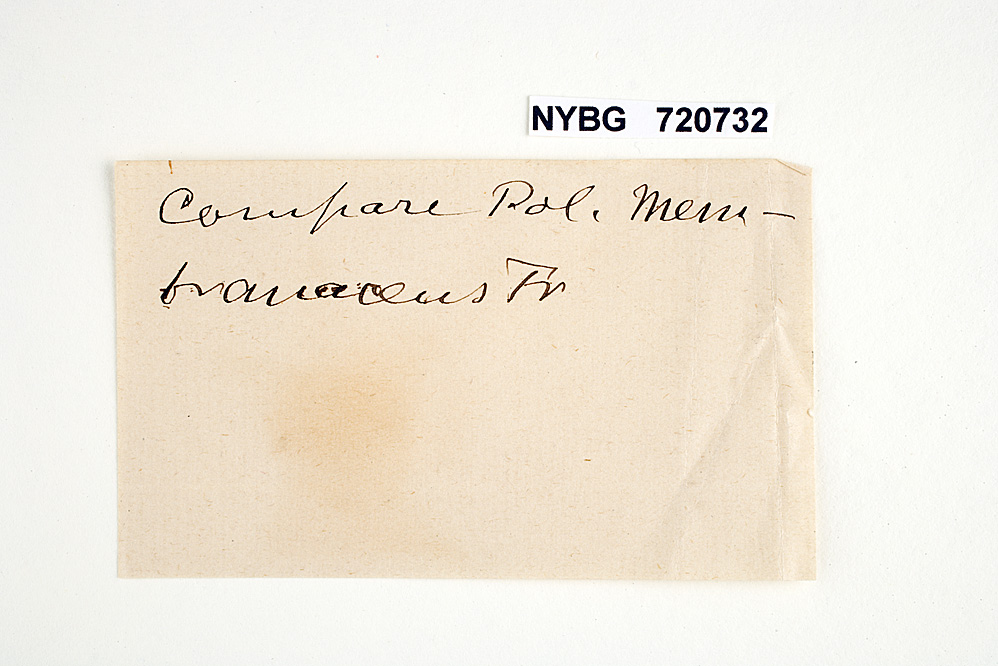 NYBG 720732
Compare Pol. Mem-
branaceus Fr